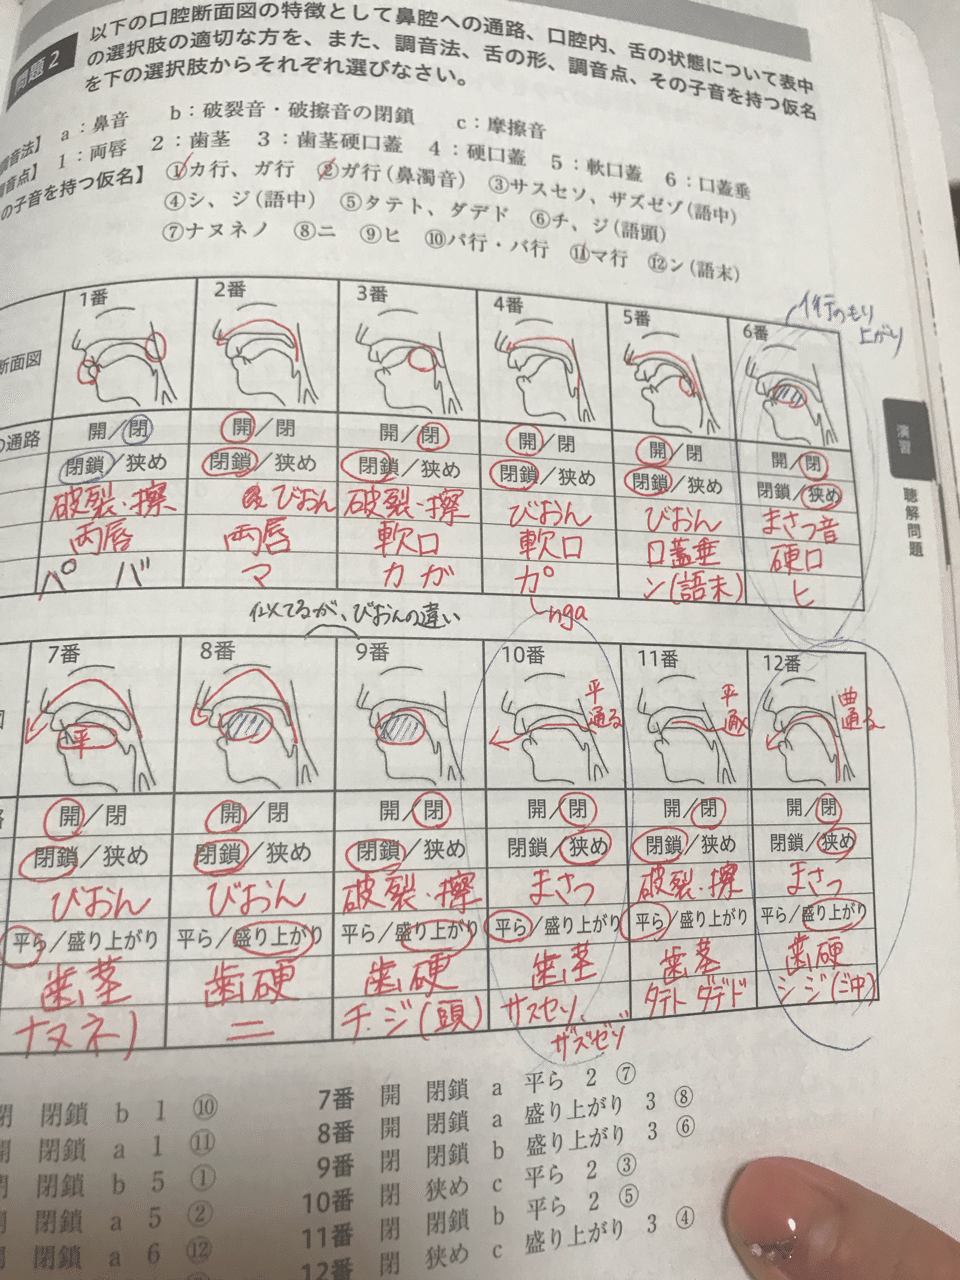 問題2
以下の口腔断面図の特徴として鼻腔への通路、口腔内、舌の状態について表中
の選択肢の適切な方を、また、調音法、舌の形、調音点、その子音を持つ仮名
を下の選択肢からそれぞれ選びなさい。
音法】 a：鼻音 b：破裂音・破擦音の閉鎖 c：摩擦音
音点】 1：両唇 2：歯茎 3：歯茎硬口蓋 4：硬口蓋 5：軟口蓋 6：口蓋垂
の子音を持つ仮名】 ①カ行、ガ行 ②ガ行(鼻濁音) ③サスセソ、ザズゼゾ(語中)
④シ、ジ(語中) ⑤タテト、ダデド ⑥チ、ジ(語頭)
⑦ナヌネノ ⑧ニ ⑨ヒ ⑩パ行・バ行 ⑪マ行 ⑫ン(語末)
1番 2番 3番 4番 5番 6番
イ行のもり
上がり
断面図
の通路 開/閉 開/閉 開/閉 開/閉 開/閉 開/閉
閉鎖/狭め 閉鎖/狭め 閉鎖/狭め 閉鎖/狭め 閉鎖/狭め 閉鎖/狭め
破裂・擦 びおん 破裂・擦 びおん びおん まさつ音
両唇 両唇 軟口 軟口 口蓋垂 硬口
パ バ マ カ ガ カ゜ ン(語末) ヒ
nga
似てるが、びおんの違い
演習
聴解問題
7番 8番 9番 10番 11番 12番
平
平
通る
平
通
曲
通る
開/閉 開/閉 開/閉 開/閉 開/閉 開/閉
閉鎖/狭め 閉鎖/狭め 閉鎖/狭め 閉鎖/狭め 閉鎖/狭め 閉鎖/狭め
びおん びおん 破裂・擦 まさつ 破裂・擦 まさつ
平ら/盛り上がり 平ら/盛り上がり 平ら/盛り上がり 平ら/盛り上がり 平ら/盛り上がり 平ら/盛り上がり
歯茎 歯硬 歯硬 歯茎 歯茎 歯硬
ナヌネノ ニ チ・ジ(頭) サスセソ、 タテト ダデド シ ジ(ジ中)
ザズゼゾ
閉 閉鎖 b 1 ⑩
閉鎖 a 1 ⑪
閉鎖 b 5 ①
閉鎖 a 5 ②
閉鎖 a 6 ⑫
7番 開 閉鎖 a 平ら 2 ⑦
8番 開 閉鎖 a 盛り上がり 3 ⑧
9番 閉 閉鎖 b 盛り上がり 3 ⑥
10番 閉 狭め c 平ら 2 ③
11番 閉 閉鎖 b 平ら 2 ⑤
12番 閉 狭め c 盛り上がり 3 ④